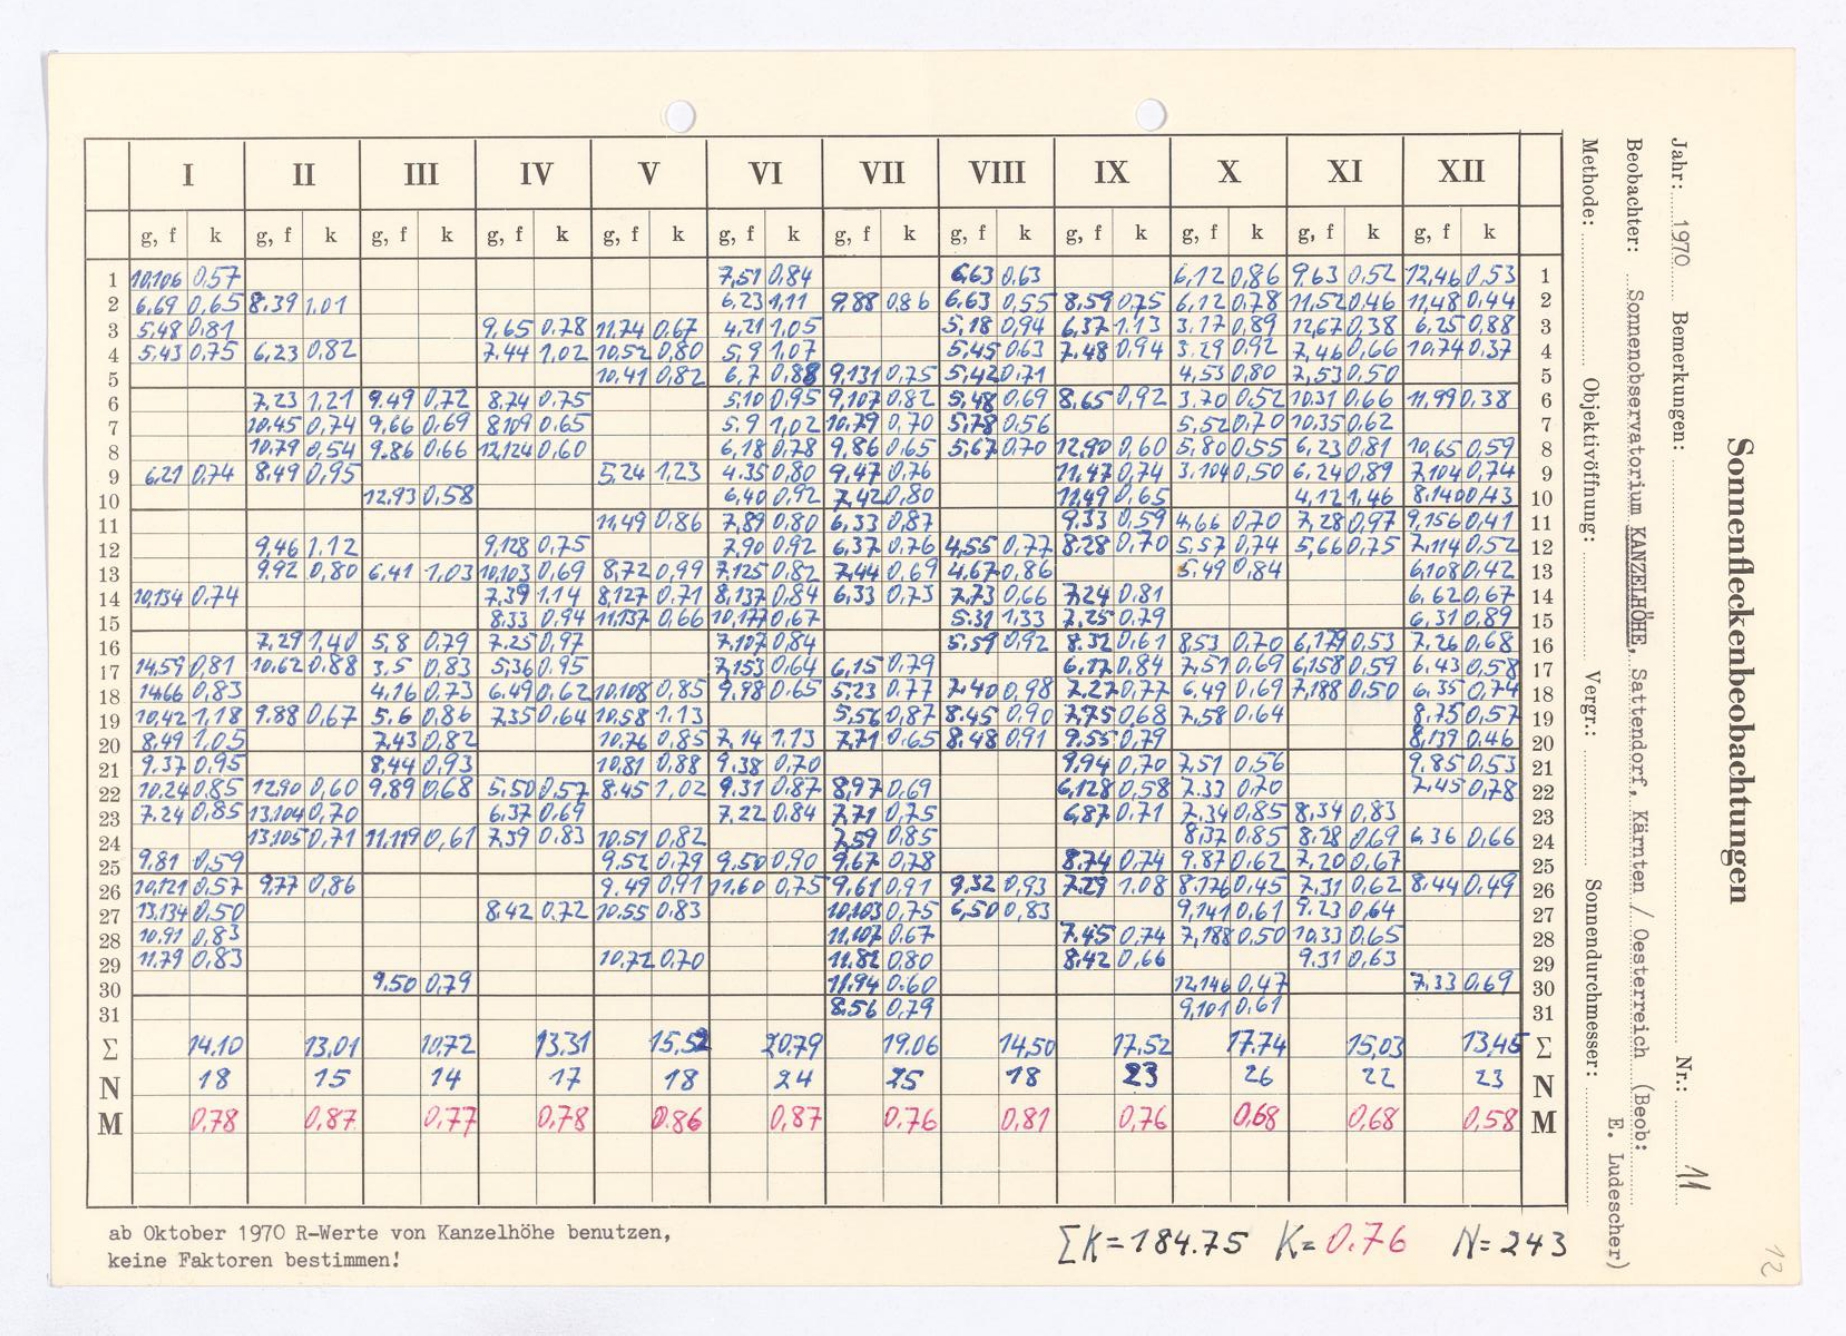 I II III IV V VI VII VIII IX X XI XII
g, f k g, f k g, f k g, f k g, f k g, f k g, f k g, f k g, f k g, f k g, f k g, f k
1 10,106 0,57 7,51 0,84 6,63 0,63 6,12 0,86 9,63 0,52 12,46 0,53 1
2 6,69 0,65 8,39 1,01 6,23 1,11 9,88 0,86 6,63 0,55 8,59 0,75 6,12 0,78 11,52 0,46 11,48 0,44 2
3 5,48 0,81 9,65 0,78 11,74 0,67 4,21 1,05 5,18 0,94 6,37 1,13 3,17 0,89 12,67 0,38 6,25 0,88 3
4 5,43 0,75 6,23 0,82 7,44 1,02 10,52 0,80 5,9 1,07 5,45 0,63 7,48 0,94 3,29 0,92 7,46 0,66 10,74 0,37 4
5 10,41 0,82 6,7 0,88 9,131 0,75 5,42 0,71 4,53 0,80 7,53 0,50 5
6 7,23 1,21 9,49 0,72 8,74 0,75 5,10 0,95 9,107 0,82 5,48 0,69 8,65 0,92 3,70 0,52 10,31 0,66 11,99 0,38 6
7 10,45 0,74 9,66 0,69 8,109 0,65 5,9 1,02 10,79 0,70 5,78 0,56 5,52 0,70 10,35 0,62 7
8 10,79 0,54 9,86 0,66 12,124 0,60 6,18 0,78 9,86 0,65 5,67 0,70 12,90 0,60 5,80 0,55 6,23 0,81 10,65 0,59 8
9 6,21 0,74 8,49 0,95 5,24 1,23 4,35 0,80 9,47 0,76 11,47 0,74 3,104 0,50 6,24 0,89 7,104 0,74 9
10 12,93 0,58 6,40 0,92 7,42 0,80 11,49 0,65 4,12 1,46 8,140 0,43 10
11 11,49 0,86 7,89 0,80 6,33 0,87 9,33 0,59 4,66 0,70 7,28 0,97 9,156 0,41 11
12 9,46 1,12 9,128 0,75 7,90 0,92 6,37 0,76 4,55 0,77 8,28 0,70 5,57 0,74 5,66 0,75 7,114 0,52 12
13 9,92 0,80 6,41 1,03 10,103 0,69 8,72 0,99 7,125 0,82 7,44 0,69 4,67 0,86 5,49 0,84 6,108 0,42 13
14 10,134 0,74 7,39 1,14 8,127 0,71 8,137 0,84 6,33 0,73 7,73 0,66 7,24 0,81 6,62 0,67 14
15 8,33 0,94 11,137 0,66 10,177 0,67 5,31 1,33 7,25 0,79 6,31 0,89 15
16 7,29 1,40 5,8 0,79 7,25 0,97 7,107 0,84 5,59 0,92 8,32 0,61 8,53 0,70 6,179 0,53 7,26 0,68 16
17 14,59 0,81 10,62 0,88 3,5 0,83 5,36 0,95 7,153 0,64 6,15 0,79 6,17 0,84 7,51 0,69 6,158 0,59 6,43 0,58 17
18 14,66 0,83 4,16 0,73 6,49 0,62 10,108 0,85 9,98 0,65 5,23 0,77 7,40 0,98 7,27 0,77 6,49 0,69 7,188 0,50 6,35 0,74 18
19 10,42 1,18 9,88 0,67 5,6 0,86 7,35 0,64 10,58 1,13 5,56 0,87 8,45 0,90 7,75 0,68 7,58 0,64 8,75 0,57 19
20 8,49 1,05 7,43 0,82 10,76 0,85 7,14 1,13 7,71 0,65 8,48 0,91 9,55 0,79 8,139 0,46 20
21 9,37 0,95 8,44 0,93 10,81 0,88 9,38 0,70 9,94 0,70 7,51 0,56 9,85 0,53 21
22 10,24 0,85 12,90 0,60 9,89 0,68 5,50 0,57 8,45 1,02 9,31 0,87 8,97 0,69 6,128 0,58 7,33 0,70 7,45 0,78 22
23 7,24 0,85 13,104 0,70 6,37 0,69 7,22 0,84 7,71 0,75 6,87 0,71 7,34 0,85 8,34 0,83 23
24 13,105 0,71 11,119 0,61 7,39 0,83 10,51 0,82 7,59 0,85 8,37 0,85 8,28 0,69 6,36 0,66 24
25 9,81 0,59 9,52 0,79 9,50 0,90 9,67 0,78 8,74 0,74 9,87 0,62 7,20 0,67 25
26 10,121 0,57 9,77 0,86 9,49 0,91 11,60 0,75 9,61 0,91 9,32 0,93 7,29 1,08 8,176 0,45 7,31 0,62 8,44 0,49 26
27 13,134 0,50 8,42 0,72 10,55 0,83 10,103 0,75 6,50 0,83 9,141 0,61 9,23 0,64 27
28 10,91 0,83 11,107 0,67 7,45 0,74 7,188 0,50 10,33 0,65 28
29 11,79 0,83 10,72 0,70 11,82 0,80 8,42 0,66 9,31 0,63 29
30 9,50 0,79 11,94 0,60 12,146 0,47 7,33 0,69 30
31 8,56 0,79 9,101 0,61 31
Σ 14,10 13,01 10,72 13,31 15,52 20,79 19,06 14,50 17,52 17,74 15,03 13,45 Σ
N 18 15 14 17 18 24 25 18 23 26 22 23 N
M 0,78 0,87 0,77 0,78 0,86 0,87 0,76 0,81 0,76 0,68 0,68 0,58 M
ab Oktober 1970 R-Werte von Kanzelhöhe benutzen,
keine Faktoren bestimmen!
ΣK = 184.75 K = 0.76 N = 243
Sonnenfleckenbeobachtungen
Jahr: 1970 Bemerkungen: Nr.: 11
Beobachter: Sonnenobservatorium KANZELHÖHE, Sattendorf, Kärnten / Oesterreich (Beob:
E. Ludescher)
Methode: Objektivöffnung: Vergr.: Sonnendurchmesser:
12